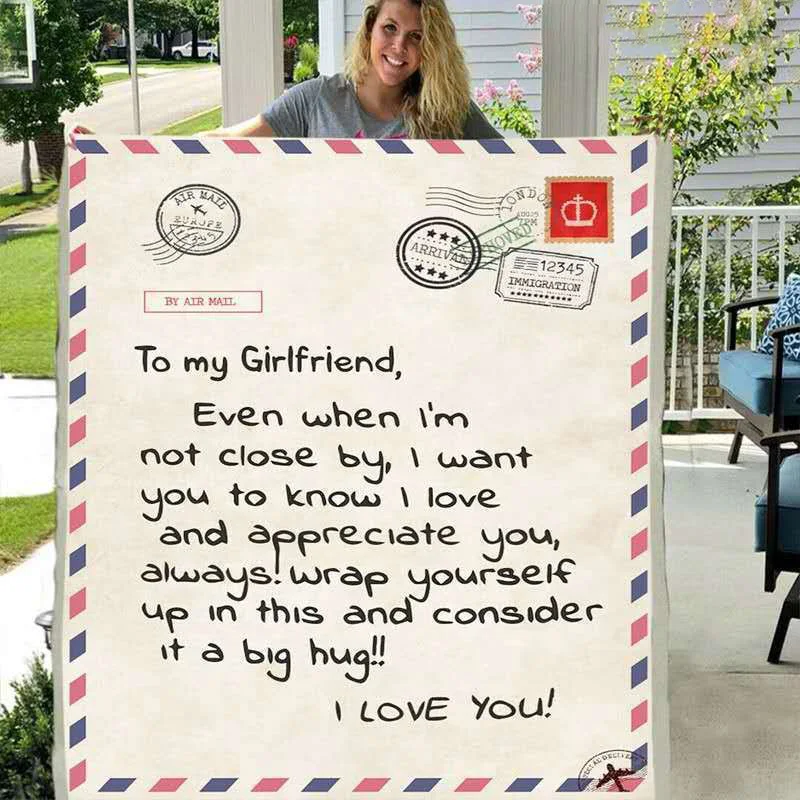 AIR MAIL
EUROPE
12345
LONDON
ARRIVAL
12345
IMMIGRATION
BY AIR MAIL
To my Girlfriend,
Even when I'm
not close by, I want
you to know I love
and appreciate you,
always! wrap yourself
up in this and consider
it a big hug!!
I LOVE YOU!